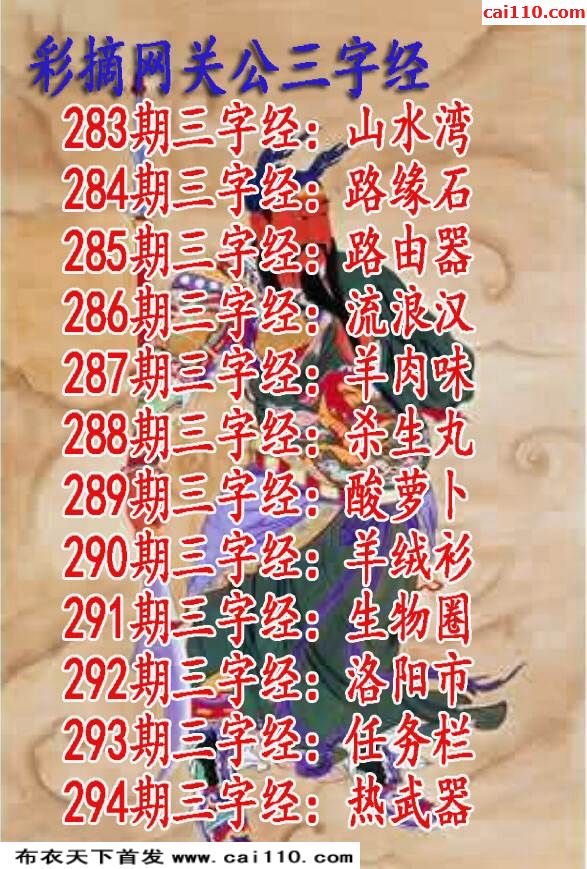 cai110.com
彩摘网关公三字经
283期三字经：山水湾
284期三字经：路缘石
285期三字经：路由器
286期三字经：流浪汉
287期三字经：羊肉味
288期三字经：杀生丸
289期三字经：酸萝卜
290期三字经：羊绒衫
291期三字经：生物圈
292期三字经：洛阳市
293期三字经：任务栏
294期三字经：热武器
布衣天下首发 www.cai110.com